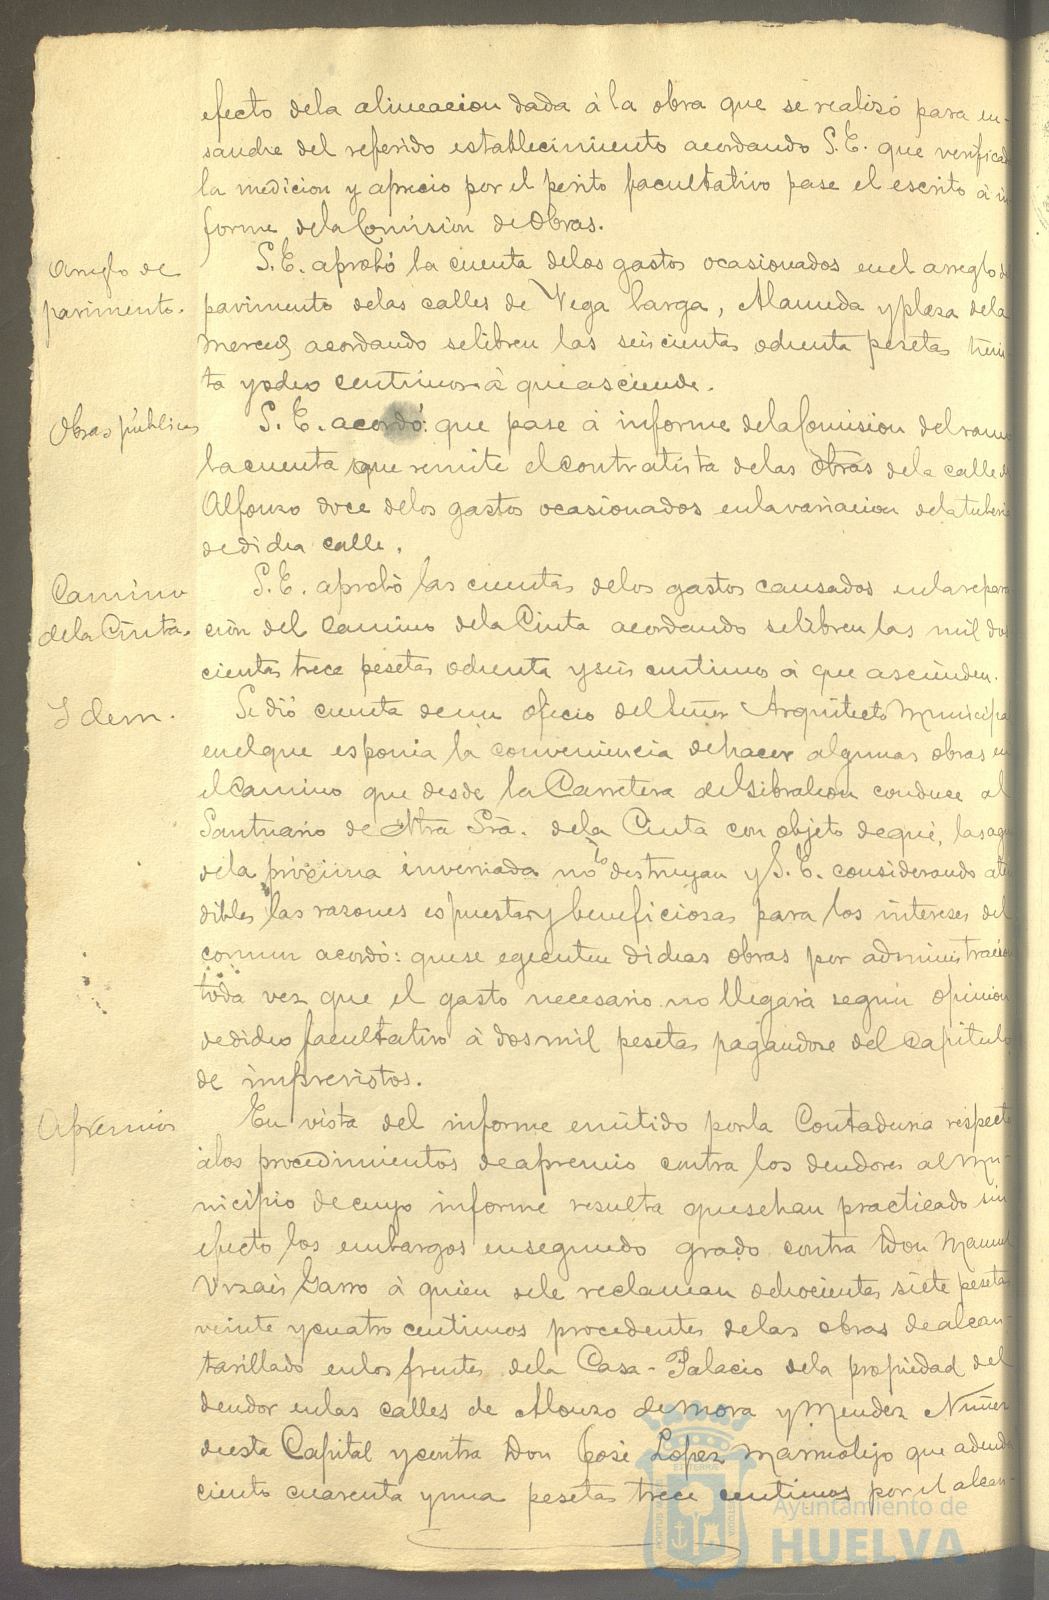 efecto dela alineacion dada á la obra que se realizó para en-
sanche del referido establecimiento acordando S.E. que verificada
la medicion y aprecio por el perito facultativo pase el escrito á in
forme dela Comision de Obras.
Arreglo de
pavimento.
S.E. aprobó la cuenta delos gastos ocasionados enel arreglo de
pavimento delas calles de Vega larga, Alameda y plaza dela
Merced acordando selibren las seiscientas ochenta pesetas trein-
ta yocho centimos á que asciende.
Obras públicas
S.E. acordó: que pase á informe dela Comision del ramo
la cuenta que remite el contratista delas obras dela calle de
Alfonso doce delos gastos ocasionados enla variacion dela tuberia
dedicha calle.
Camino
dela Cinta.
S.E. aprobó las cuentas delos gastos causados enla repara
ción del camino dela Cinta acordando selibren las mil dos
cientas trece pesetas ochenta yseis centimos á que ascienden.
Idem.
Se dió cuenta deun oficio del Señor Arquitecto Municipal
enelque esponia la conveniencia dehacer algunas obras en
el camino que desde la Carretera de Gibraleon conduce al
Santuario de Ntra Sra. dela Cinta con objeto deque, las aguas
dela próxima invernada no lo destruyan y S.E. considerando aten
dibles las razones espuestas y beneficiosas para los intereses del
comun acordó: quese egecuten dichas obras por administracion
toda vez que el gasto necesario no llegará segun opinion
dedicho facultativo á dosmil pesetas pagandose del Capitulo
de imprevistos.
Apremios
En vista del informe emitido porla Contaduria respecto
álos procedimientos deapremio contra los deudores al Mu-
nicipio decuyo informe resulta quesehan practicado sin
efecto los embargos ensegundo grado contra Don Manuel
Vrzaiz Garro á quien sele reclaman ochocientas siete pesetas
veinte ycuatro centimos procedentes delas obras dealcan-
tarillado enlos frentes dela Casa-Palacio dela propiedad del
deudor enlas calles de Alonzo de Mora y Mendez Nuñez
deesta Capital ycontra Don José Lopez Marmolejo que adeuda
ciento cuarenta yuna pesetas trece centimos por el alcan-
Ayuntamiento de
HUELVA